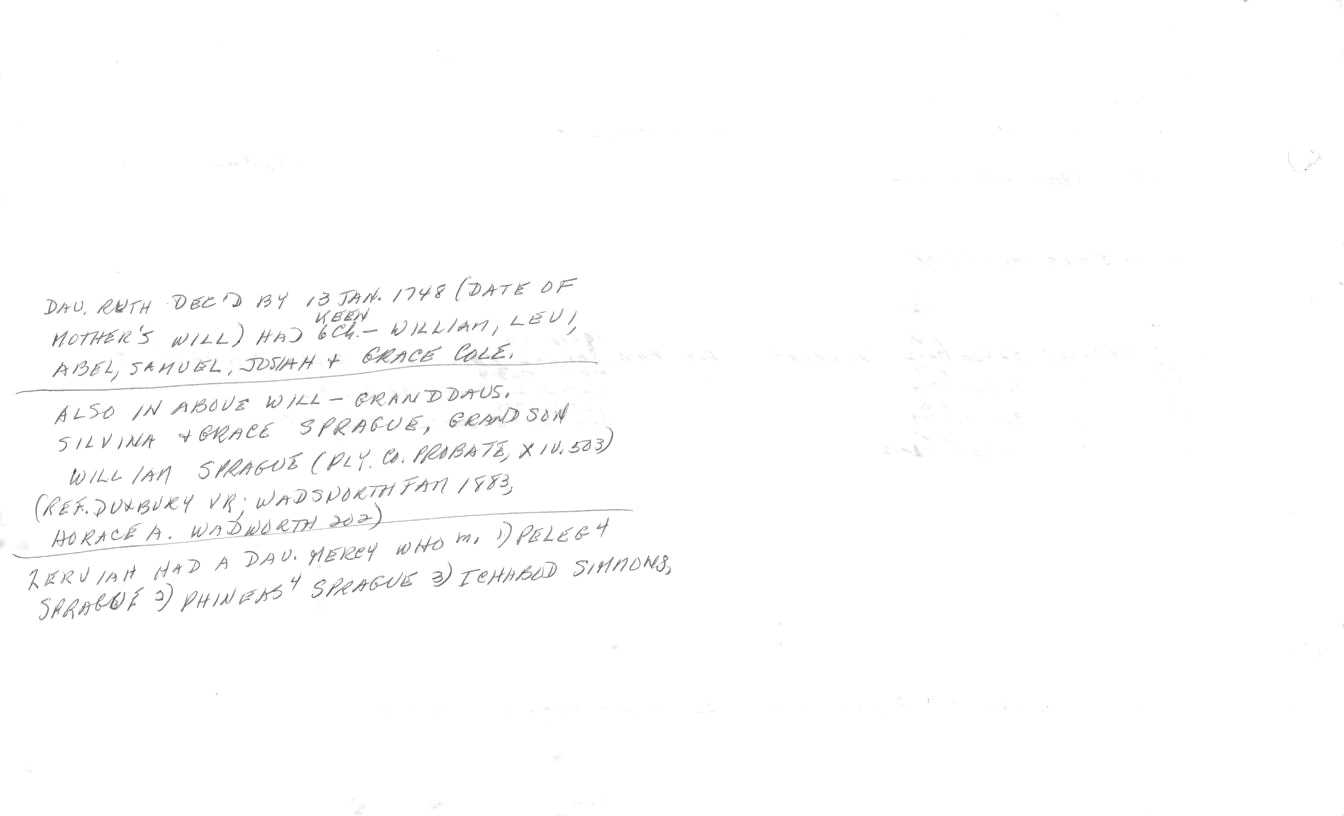 DAU. RUTH DEC'D BY 13 JAN. 1748 (DATE OF
KEEN
MOTHER'S WILL) HAD 6 Ch. — WILLIAM, LEVI,
ABEL, SAMUEL, JOSIAH + GRACE COLE.
ALSO IN ABOVE WILL — GRANDDAUS.
SILVINA + GRACE SPRAGUE, GRANDSON
WILLIAM SPRAGUE (PLY. Co. PROBATE, XIV. 503)
(REF. DUXBURY VR; WADSWORTH FAM 1883,
HORACE A. WADWORTH 202)
ZERVIAH HAD A DAU. MERCY WHO m. 1) PELEG 4
SPRAGUE 2) PHINEAS 4 SPRAGUE 3) ICHABOD SIMMONS,